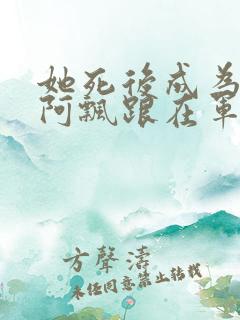 她死後成為
阿飄跟在軍
方聲濤
未經同意禁止轉載